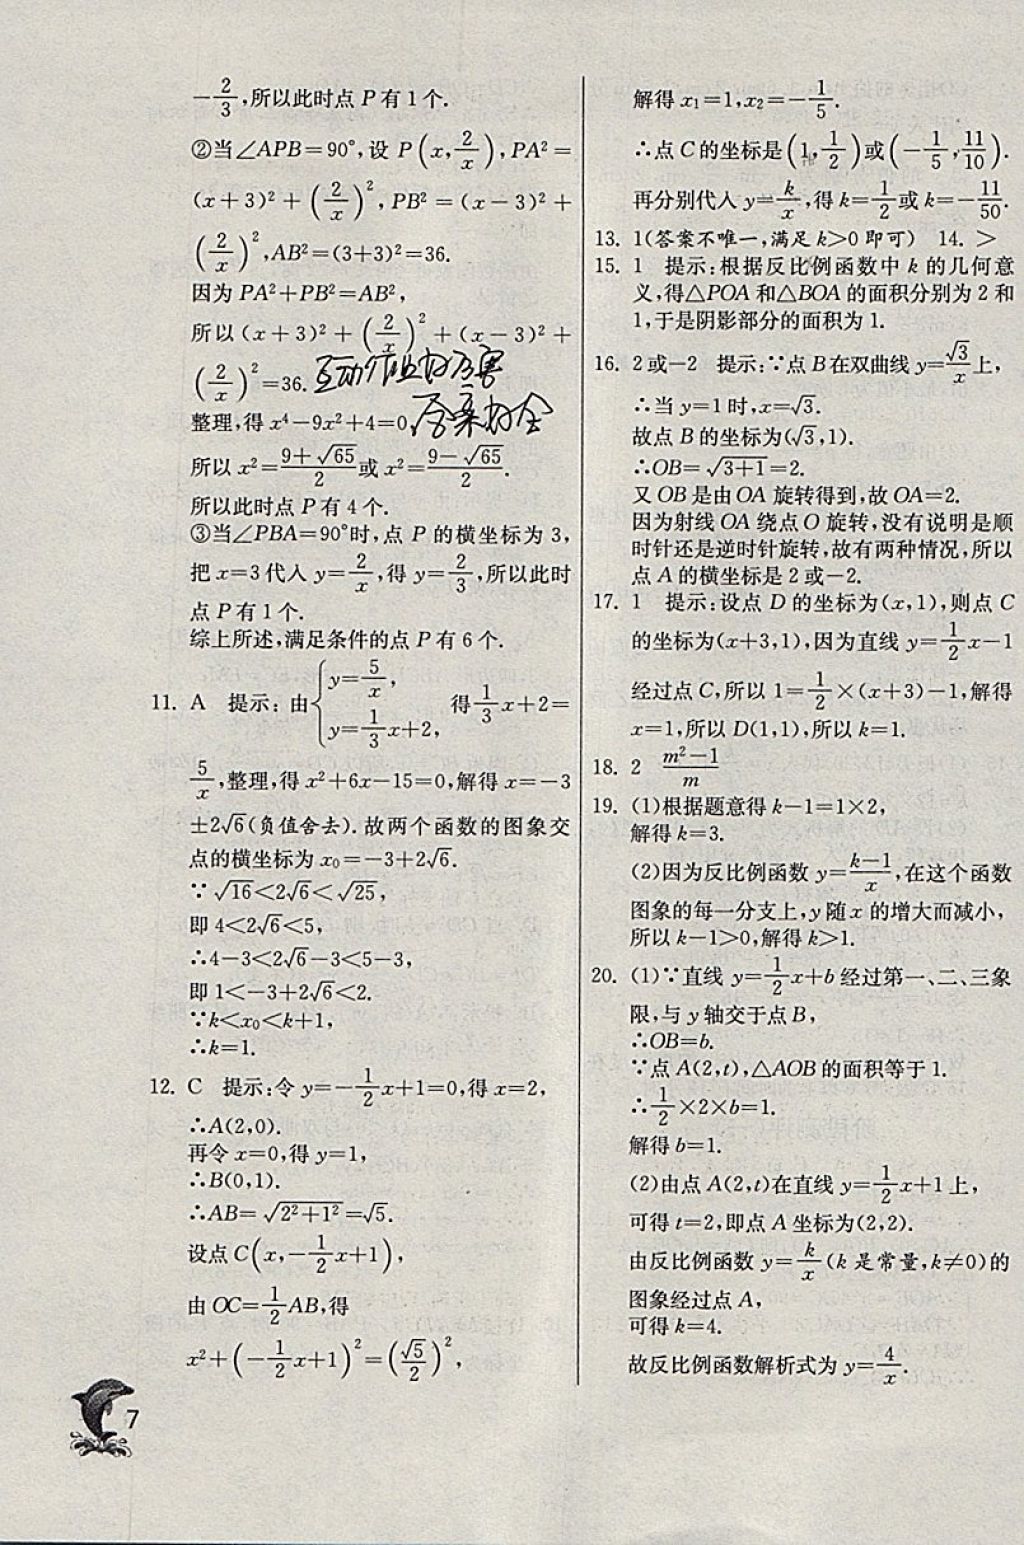 -2/3,所以此时点 P 有 1 个.
②当∠APB=90°,设 P(x,2/x),PA²=
(x+3)²+(2/x)²,PB²=(x-3)²+
(2/x)²,AB²=(3+3)²=36.
因为 PA²+PB²=AB²,
所以(x+3)²+(2/x)²+(x-3)²+
(2/x)²=36.互动作业好厉害
整理,得 x⁴-9x²+4=0,答案好全
所以 x²=(9+√65)/2或 x²=(9-√65)/2.
所以此时点 P 有 4 个.
③当∠PBA=90°时,点 P 的横坐标为 3,
把 x=3代入 y=2/x,得 y=2/3,所以此时
点 P 有 1 个.
综上所述,满足条件的点 P 有 6 个.
11. A 提示:由{y=5/x, y=1/3x+2, 得1/3x+2=
5/x,整理,得 x²+6x-15=0,解得 x=-3
±2√6(负值舍去).故两个函数的图象交
点的横坐标为 x₀=-3+2√6.
∵√16<2√6<√25,
即 4<2√6<5,
∴4-3<2√6-3<5-3,
即 1<-3+2√6<2.
∵k<x₀<k+1,
∴k=1.
12. C 提示:令 y=-1/2x+1=0,得 x=2,
∴A(2,0).
再令 x=0,得 y=1,
∴B(0,1).
∴AB=√2²+1²=√5.
设点 C(x,-1/2x+1),
由 OC=1/2AB,得
x²+(-1/2x+1)²=(√5/2)²,
7
解得 x₁=1,x₂=-1/5.
∴点 C 的坐标是(1,1/2)或(-1/5,11/10).
再分别代入 y=k/x,得 k=1/2或 k=-11/50.
13. 1(答案不唯一,满足 k>0 即可) 14. >
15. 1 提示:根据反比例函数中 k 的几何意
义,得△POA 和△BOA 的面积分别为 2 和
1,于是阴影部分的面积为 1.
16. 2 或-2 提示:∵点 B 在双曲线 y=√3/x上,
∴当 y=1 时,x=√3.
故点 B 的坐标为(√3,1).
∴OB=√3+1=2.
又 OB 是由 OA 旋转得到,故 OA=2.
因为射线 OA 绕点 O 旋转,没有说明是顺
时针还是逆时针旋转,故有两种情况,所以
点 A 的横坐标是 2 或-2.
17. 1 提示:设点 D 的坐标为(x,1),则点 C
的坐标为(x+3,1),因为直线 y=1/2x-1
经过点 C,所以 1=1/2×(x+3)-1,解得
x=1,所以 D(1,1),所以 k=1.
18. 2 (m²-1)/m
19. (1)根据题意得 k-1=1×2,
解得 k=3.
(2)因为反比例函数 y=(k-1)/x,在这个函数
图象的每一分支上,y 随 x 的增大而减小,
所以 k-1>0,解得 k>1.
20. (1)∵直线 y=1/2x+b 经过第一、二、三象
限,与 y 轴交于点 B,
∴OB=b.
∵点 A(2,t),△AOB 的面积等于 1.
∴1/2×2×b=1.
解得 b=1.
(2)由点 A(2,t)在直线 y=1/2x+1 上,
可得 t=2,即点 A 坐标为(2,2).
由反比例函数 y=k/x(k 是常量,k≠0)的
图象经过点 A,
可得 k=4.
故反比例函数解析式为 y=4/x.